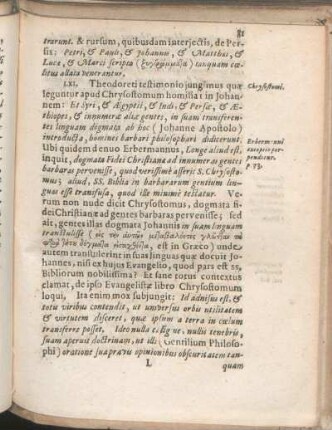 81
trarunt. & rursum, quibusdam interjectis, de Per-
sis: Petri, & Pauli, & Johannis, & Matthæi, &
Lucæ, & Marci scripta tanquam cæ-
litus allata venerantur.
LXI. Theodoreti testimonio jungimus quæ
leguntur apud Chrysostomum homilia 1. in Johan-
nem: Et Syri, & Ægyptii, & Indi, & Persæ, & Æ-
thiopes, & innumeræ aliæ gentes, in suam transferen-
tes linguam dogmata ab hoc (Johanne Apostolo)
introducta, homines barbari philosophari didicerunt.
Ubi quidem denuo Erbermannus, Longe aliud est,
inquit, dogmata Fidei Christianæ ad innumeras gentes
barbaras pervenisse, quod verissime asserit S. Chrysosto-
mus; aliud, SS. Biblia in barbararum gentium lin-
guas esse transfusa, quod ille minime testatur. Ve-
rum non nude dicit Chrysostomus, dogmata fi-
dei Christianæ ad gentes barbaras pervenisse, sed
ait, gentes illas dogmata Johannis in suam linguam
transtulisse
est in Græco) unde
autem transtulerint in suas linguas quæ docuit Jo-
hannes, nisi ex hujus Evangelio, quod pars est SS.
Bibliorum nobilissima? Et sane totus contextus
clamat, de ipso Evangelistæ libro Chrysostomum
loqui, Ita enim mox subjungit: Id adnisus est, &
totis viribus contendit, ut universus orbis utilitatem
& virtutem disceret, quæ ipsum a terra in cœlum
transferre posset. Ideo nulla caligine, nullis tenebris,
suam aperuit doctrinam, ut illi (Gentilium Philoso-
phi) oratione sua pravis opinionibus obscuritatem tan-
L quam
Chrysostomi.
Erbermanni
exceptio per-
penditur.
p. 73.